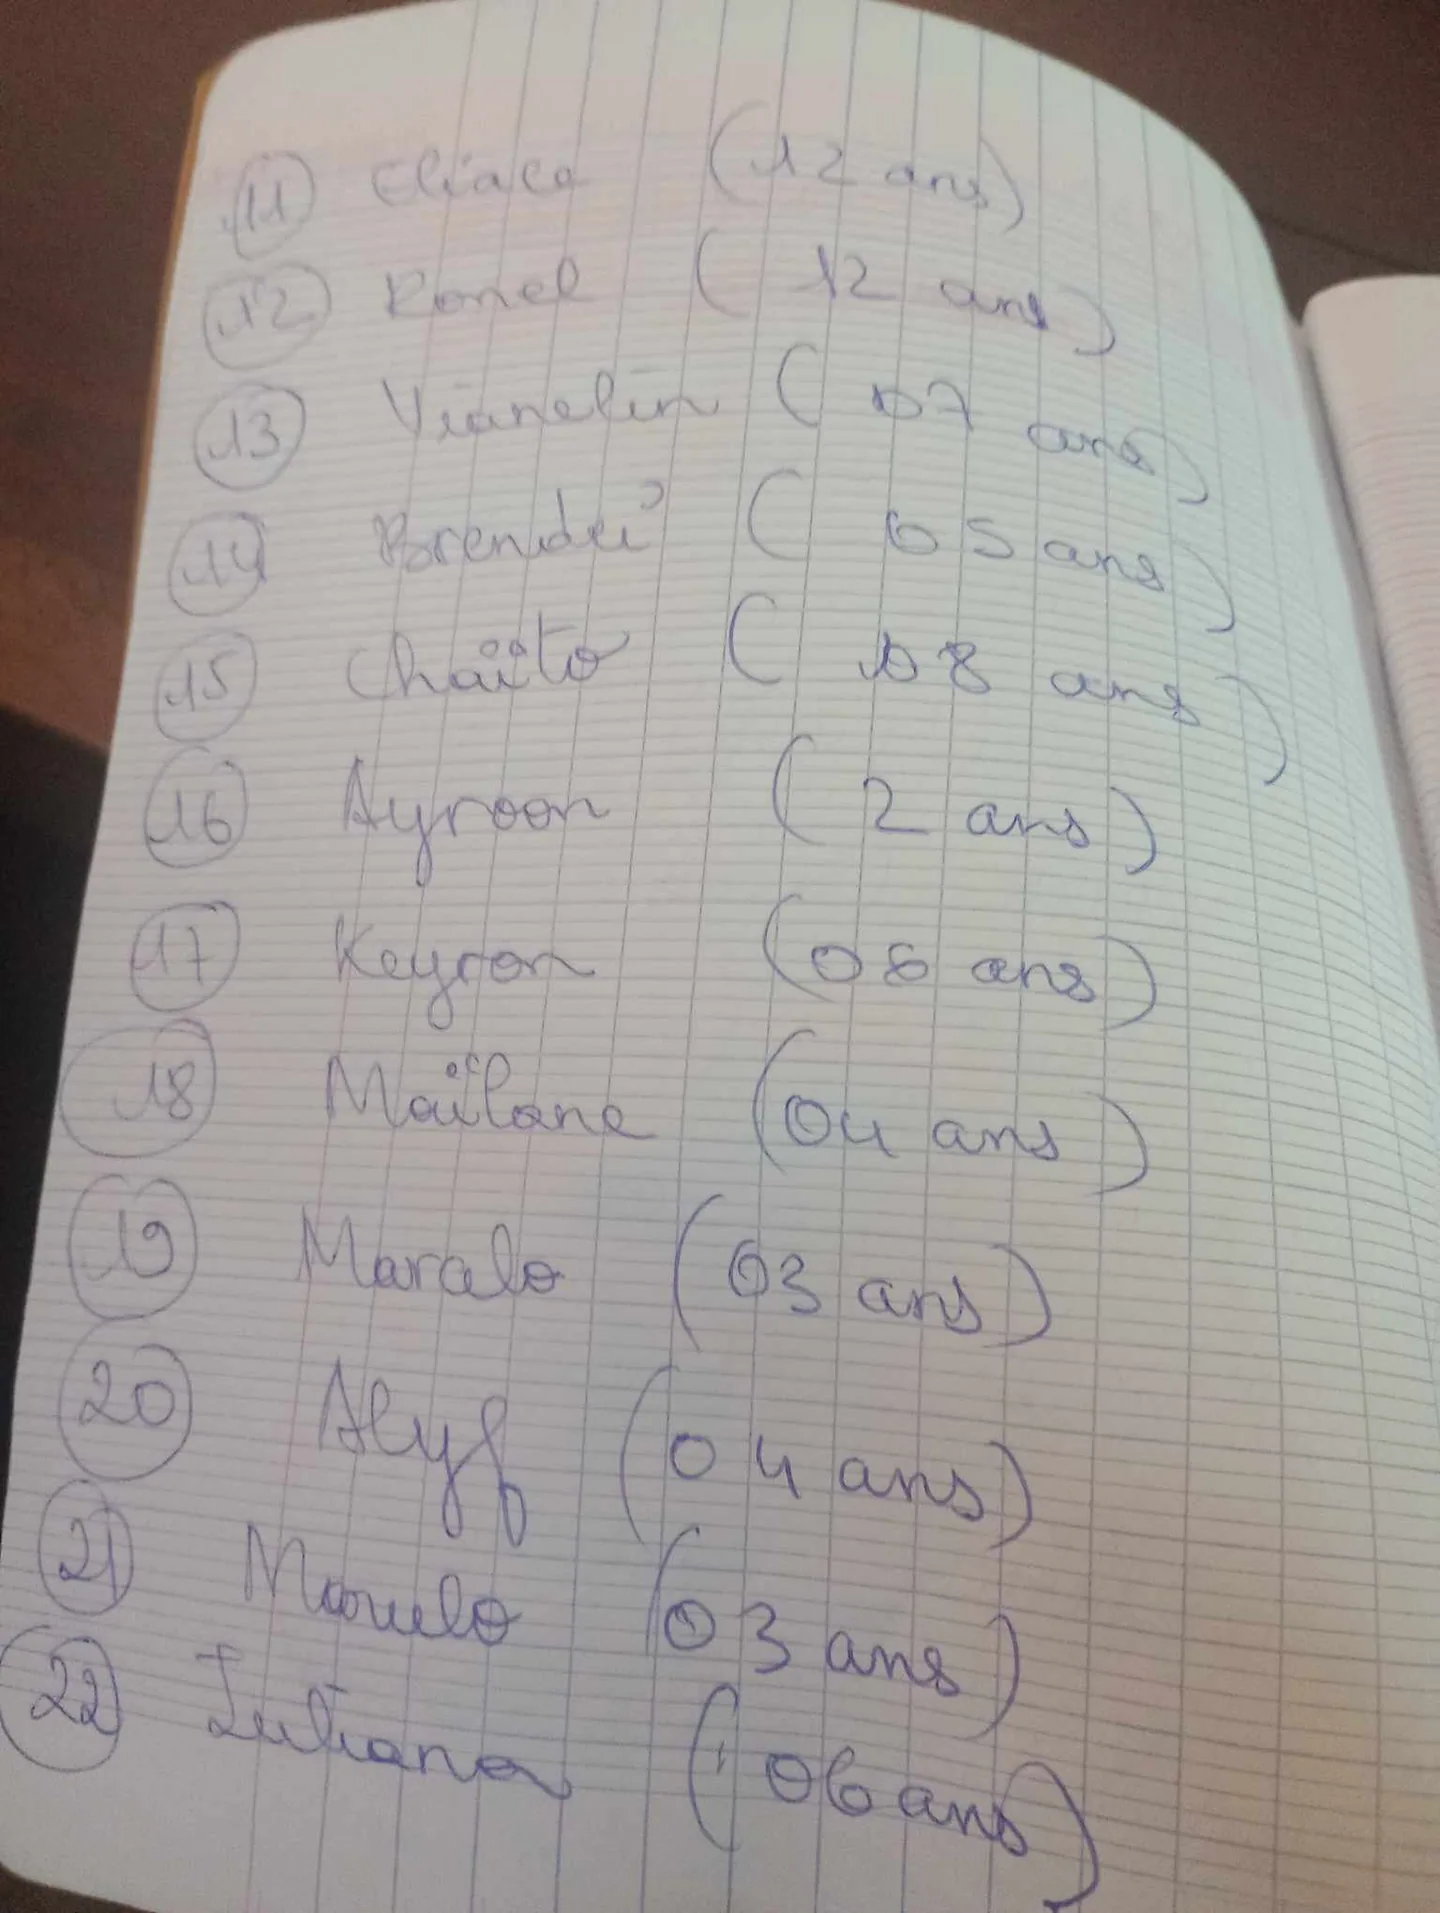 11 Eliala (12 ans)
12 Ronel (12 ans)
13 Vianelin (07 ans)
14 (05 ans)
15 Chaïto (08 ans)
16 Ayroon (2 ans)
17 Keyron (06 ans)
18 Maïlane (04 ans)
19 Maralo (03 ans)
20 Alyf (04 ans)
21 (03 ans)
22 (06 ans)